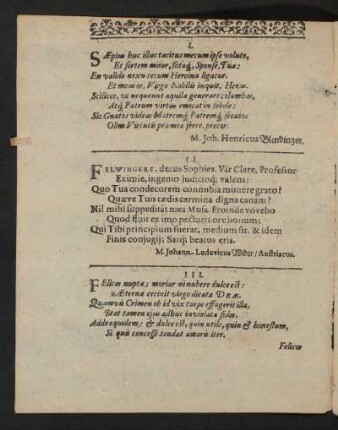 I.
SÆpius huc illuc tacitus mecum ipse voluto,
Et sortem miror, Sponse, Tuam:
En valido nexu tecum Heroina ligatur.
Et meus es, Virgo Nobilis inquit, Herus.
Scilicet, ut nequeunt aquilæ generare columbas,
Atq; Patrum virtus emicat in sobole:
Sic Gnatos videas Matremq; Patremq; secutos
Olim Virtutis præmia ferre, precor.
M. Joh. Henricus Blendinger.
II.
FELWINGERE, decus Sophies, Vir Clare, Professor
Eximie, ingenio Judicioq; valens:
Quo Tua condecorem connubia munere grato?
Quæve Tuis tædis carmina digna canam?
Nil mihi suppeditat mea Musa. Proinde vovebo
Quod fluit ex imo pectore bonum:
Qui Tibi principium fuerat, medium sit, & idem
Finis conjugij; Satq; beatus eris.
M. Johann-Ludovicus Wider/Austriacus.
III.
FEliciter nuptæ; moriar ni nubere dulce est:
Æternæ crevit virgo dicata Deæ.
Quamvis Crimen id id vix turpe effugerit illa,
Stat tamen ejus adhuc inviolata fides.
Adde equidem; & dulce est, quin utile, quin & honestum,
Si quis concessi tendat amoris iter.
Felices